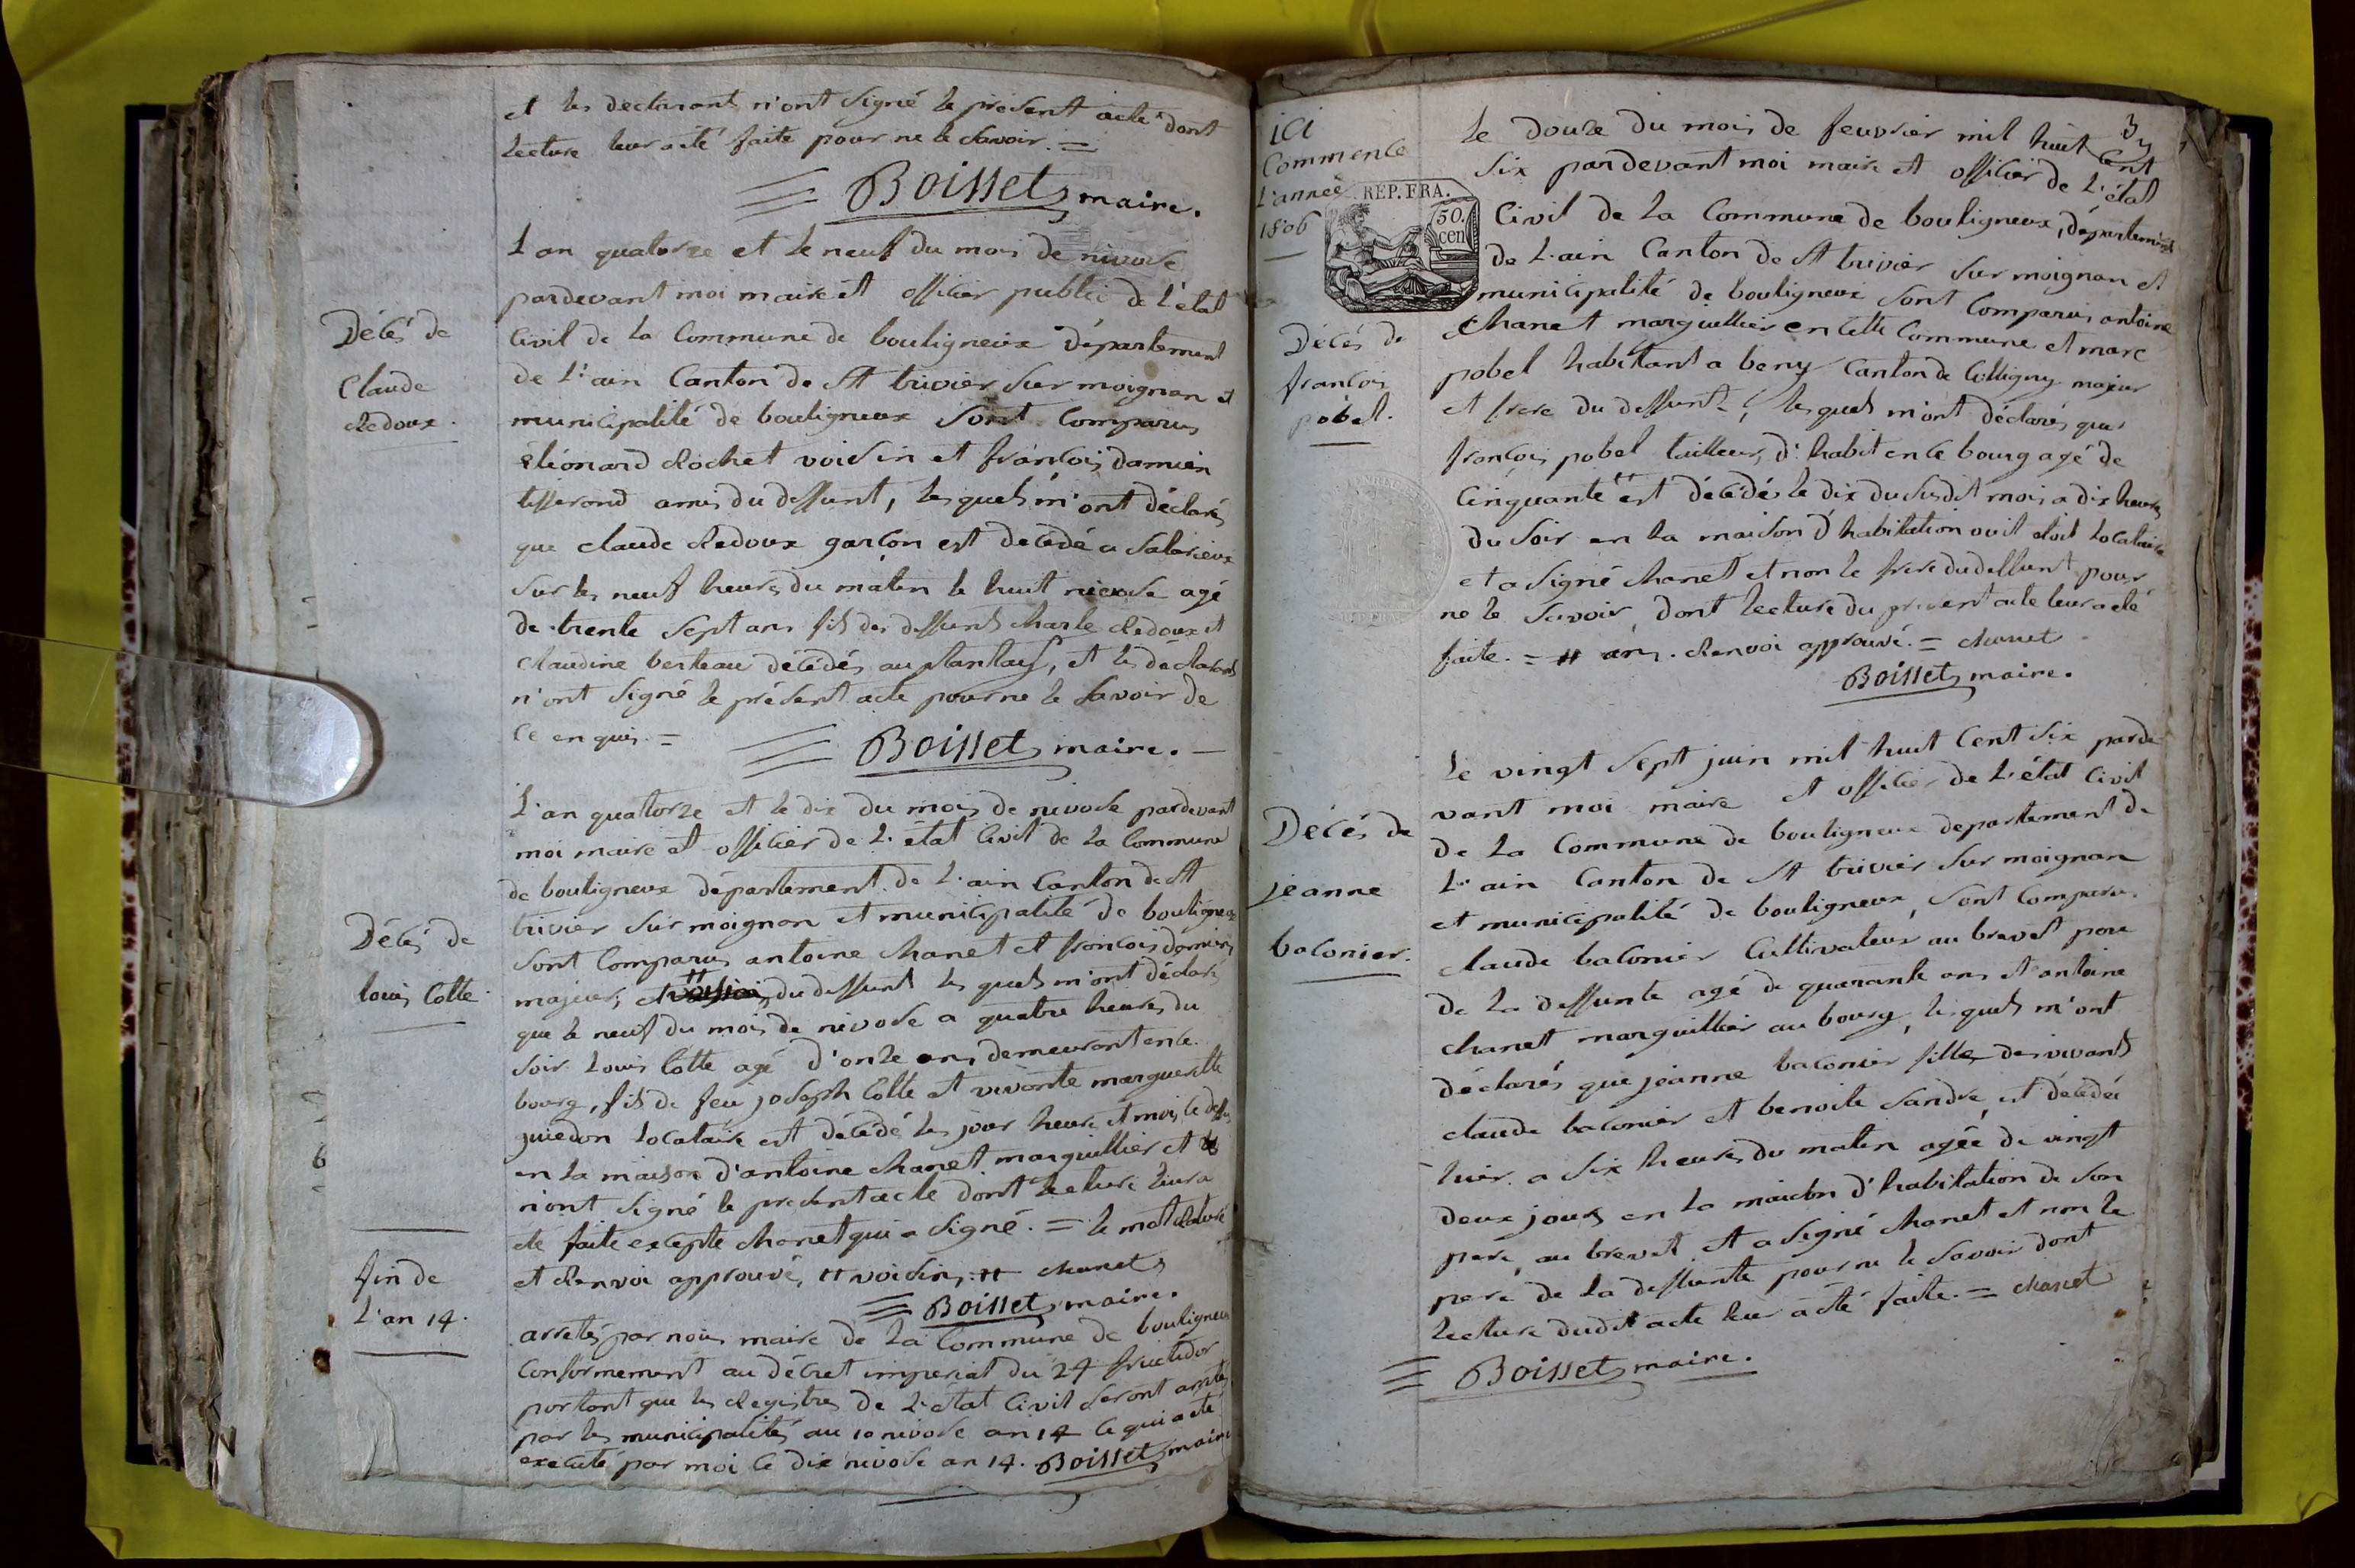 et les declarant n'ont signé le présent acte dont
lecture leur a été faite pour ne le savoir. =
Boisset maire.
L'an quatorze et le neuf du mois de nivose
pardevant moi maire et officier public de l'état
Décés de
Claude
Redoux.
Civil de la Commune de bouligneux département
de l'ain Canton de St trivier sur moignan et
municipalité de bouligneux sont Comparus
éléonard Rochet voisin et françois damien
tisserand amis du deffunt, les quels m'ont déclarés
que claude Redoux garçon est decédé a
sur les neuf heures du matin le huit nivose agé
de trente sept ans fils des deffunts charle Redoux et
claudine berteau décédés au plantay, et les déclarants
n'ont signé le présent acte pour ne le savoir de
Ce enquis. =
Boisset maire.
L'an quatorze et le dix du mois de nivose pardevant
moi maire et officier de l'état Civil de la Commune
de bouligneux département de l'ain Canton de St
trivier sur moignan et municipalité de bouligneux
Décés de
louis Colte.
sont Comparus antoine chanet et françois damien
majeurs, et du deffunt les quels m'ont déclaré
que le neuf du mois de nivose a quatre heures du
soir Louis Colte agé d'onze ans demeurant en ce
bourg, fils de feu joseph Colte et vivante margueritte
guiedon Locataire est décédé les jour heure et mois Ce dessus
en la maison d'antoine chanet marguillier et
n'ont signé le présent acte dont lecture leur a
été faite excepte chanet qui a signé. = le mot Raturé
et Renvoi approuvé, # voisins # chanet
Boisset maire.
fin de
L'an 14.
arretés par nous maire de la Commune de bouligneux
Conformement au décret imperial du 24 fructidor
portant que les Registres de l'état Civil seront arretés
par les municipalités au 10 nivose an 14 Ce qui a été
executé par moi Ce dix nivose an 14. Boisset maire
6
ici
Commence
L'année
1806
REP. FRA.
50.
cen
3
Le douze du mois de feuvrier mil huit Cent
Six pardevant moi maire et officier de l'état
Civil de la Commune de bouligneux, département
de l'ain Canton de St trivier sur moignan et
municipalité de bouligneux sont Comparus antoine
Décés de
françois
pobel.
Chanet marguillier en Cette Commune et marc
pobel habitant a beny Canton de Colligny majeur
et frere du deffunt, les quels m'ont déclarés que
françois pobel tailleur d'habit en Ce bourg agé de
Cinquante # est décédé le dix du susdit mois a dix heures
du soir en la maison d'habitation ou il etoit Locataire
et a signé chanet et non le frere du deffunt pour
ne le savoir dont lecture du présent acte leur a été
faite. = # ans. Renvoi approuvé. = chanet
Boisset maire.
Le vingt sept juin mil huit Cent Six parde
vant moi maire et officier de l'état Civil
Décés de
jeanne
baconier.
de la Commune de bouligneux departement de
L'ain Canton de St trivier sur moignan
et municipalité de bouligneux, sont Comparus
claude baconier Cultivateur au brevet pere
de la deffunte agé de quarante ans et antoine
chanet marguillier au bourg, les quels m'ont
déclarés que jeanne baconier fille des vivants
claude baconier et benoite sandre, est décédée
hier a six heures du matin agée de vingt
deux jours en la maison d'habitation de son
pere, au brevet et a signé chanet et non le
pere de la deffunte pour ne le savoir dont
lecture dudit acte leur a été faite. = chanet
Boisset maire.